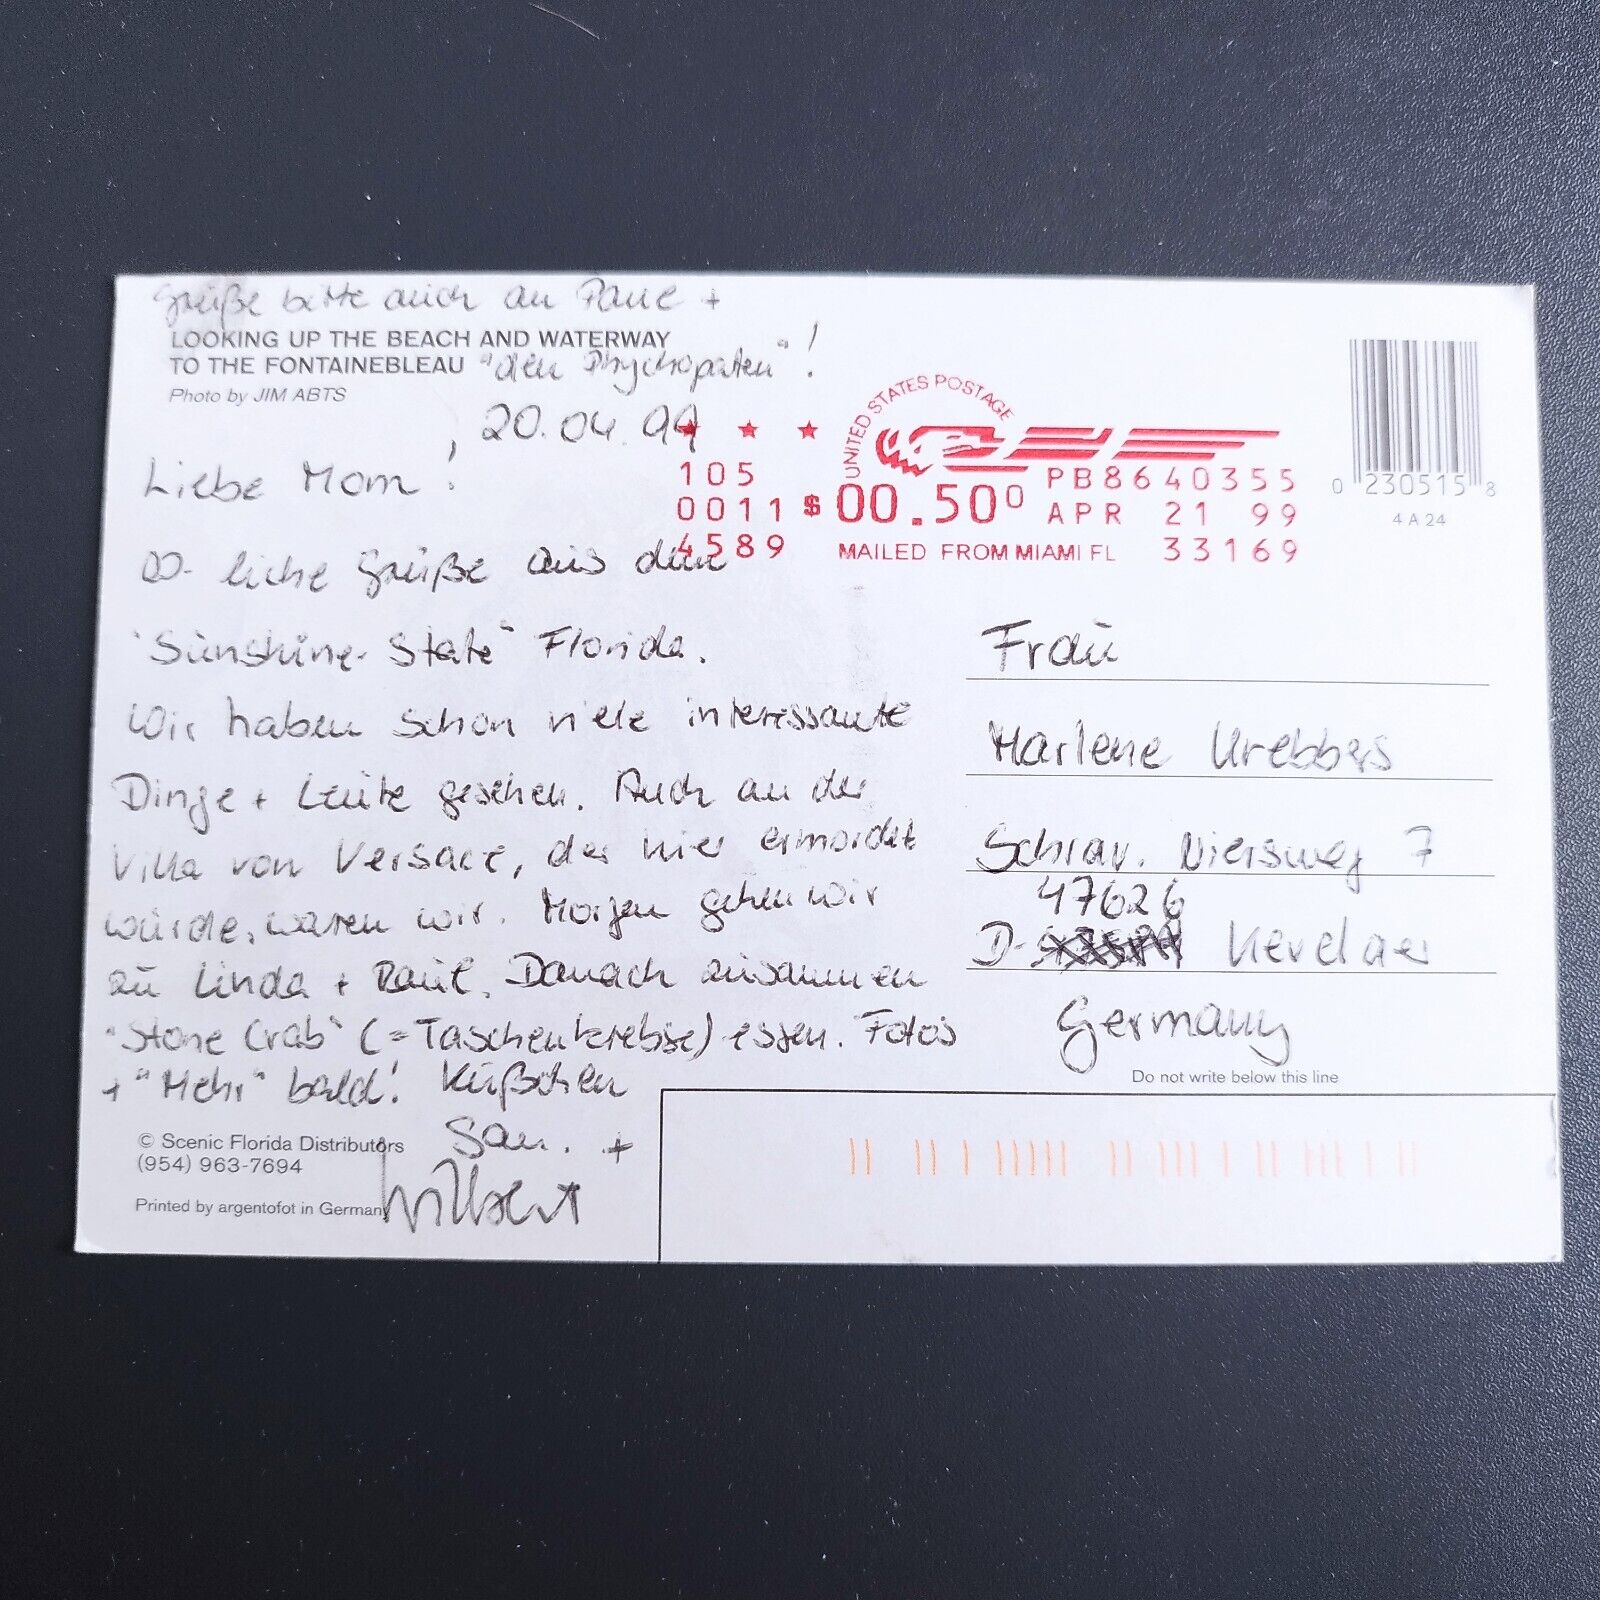 Grüße bitte auch an Paul +
LOOKING UP THE BEACH AND WATERWAY
TO THE FONTAINEBLEAU
"den Psychopaten"!
Photo by JIM ABTS
20.04.99
Liebe Mom!
liche Grüße aus dem
"Sunshine-State" Florida.
Wir haben schon viele interessante
Dinge + Leute gesehen. Auch an der
Villa von Versace, der hier ermordet
wurde, waren wir. Morgen gehen wir
zu Linda + Raul. Danach zusammen
"Stone Crab" (=Taschenkrebse) essen. Fotos
+ "Mehr" bald! Küßchen
San. +
Wilbert
© Scenic Florida Distributors
(954) 963-7694
Printed by argentofot in German
UNITED STATES POSTAGE
105
0011
4589
$00.500
PB8640355
APR 21 99
MAILED FROM MIAMI FL 33169
0 230515 8
4A24
Frau
Marlene
Schrav. Niersweg 7
47626
D- Kevelaer
Germany
Do not write below this line